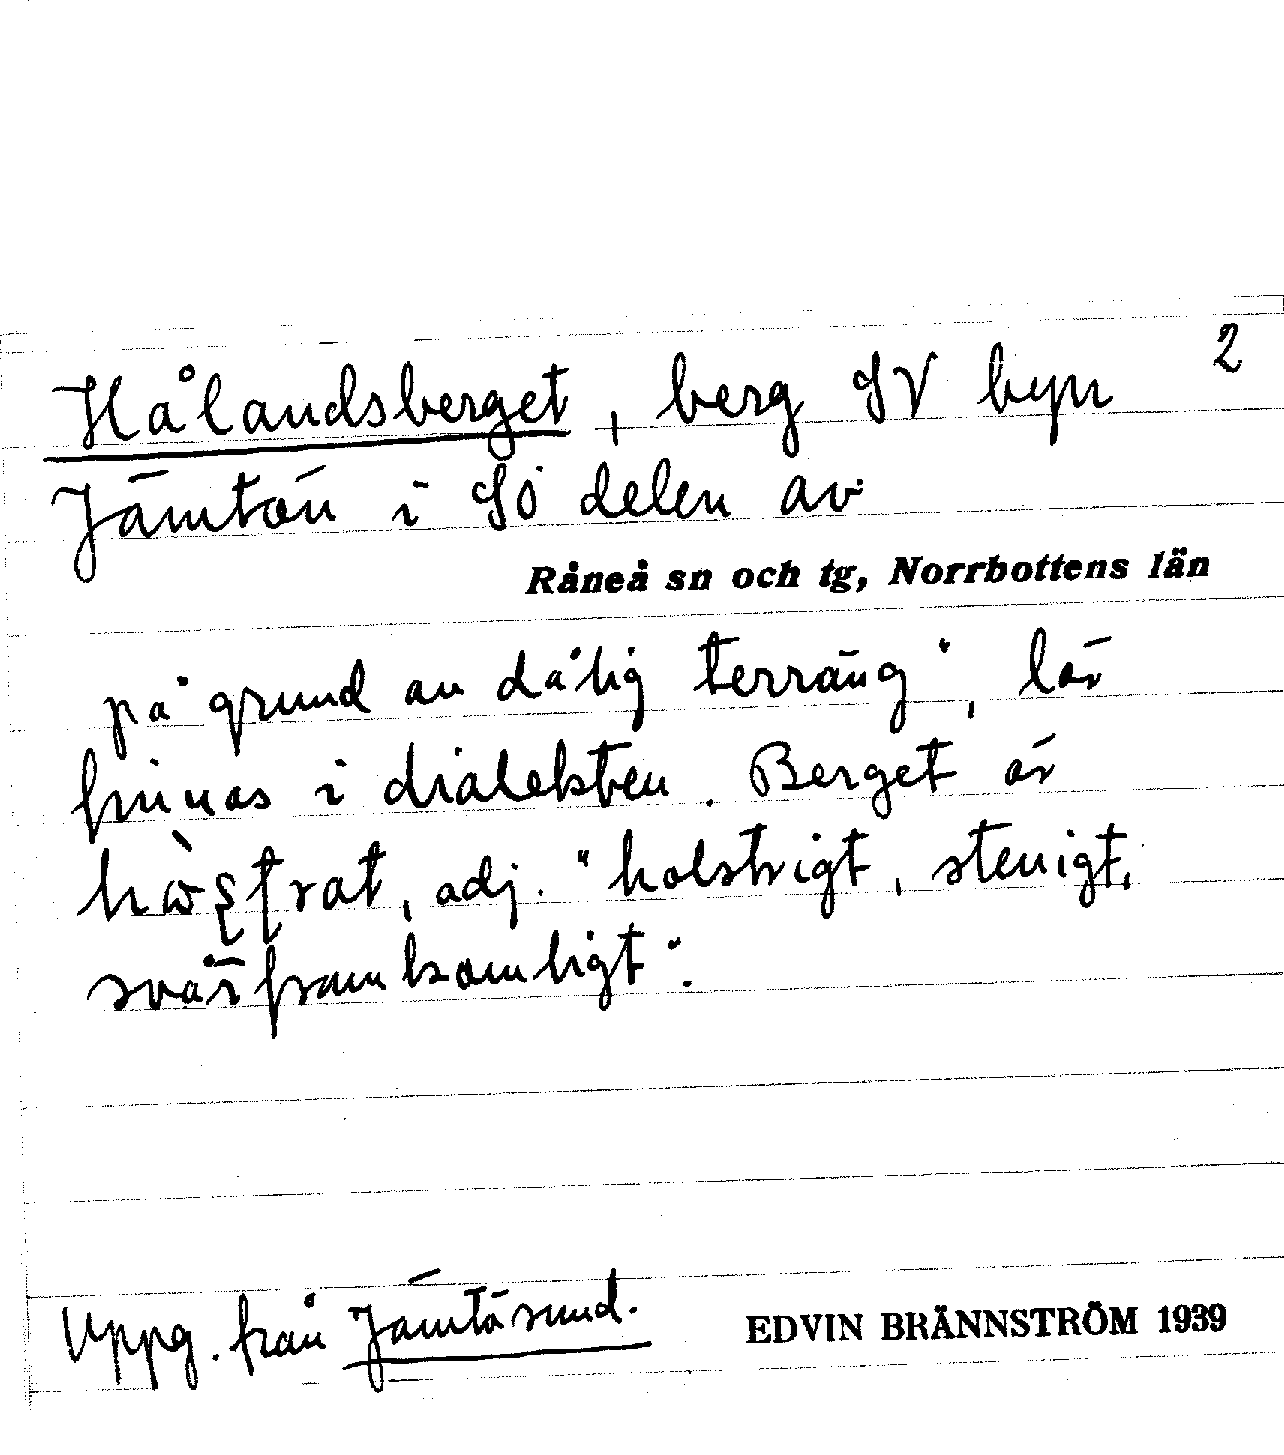 2
Hålandsberget, berg SV byn
Jämtön i SÖ delen av
Råneå sn och tg, Norrbottens län
på grund av dålig terräng", lär
finnas i dialekten. Berget är
adj. "holstrigt, stenigt,
svårframkomligt".
Uppg. från Jämtösund.
EDVIN BRÄNNSTRÖM 1939